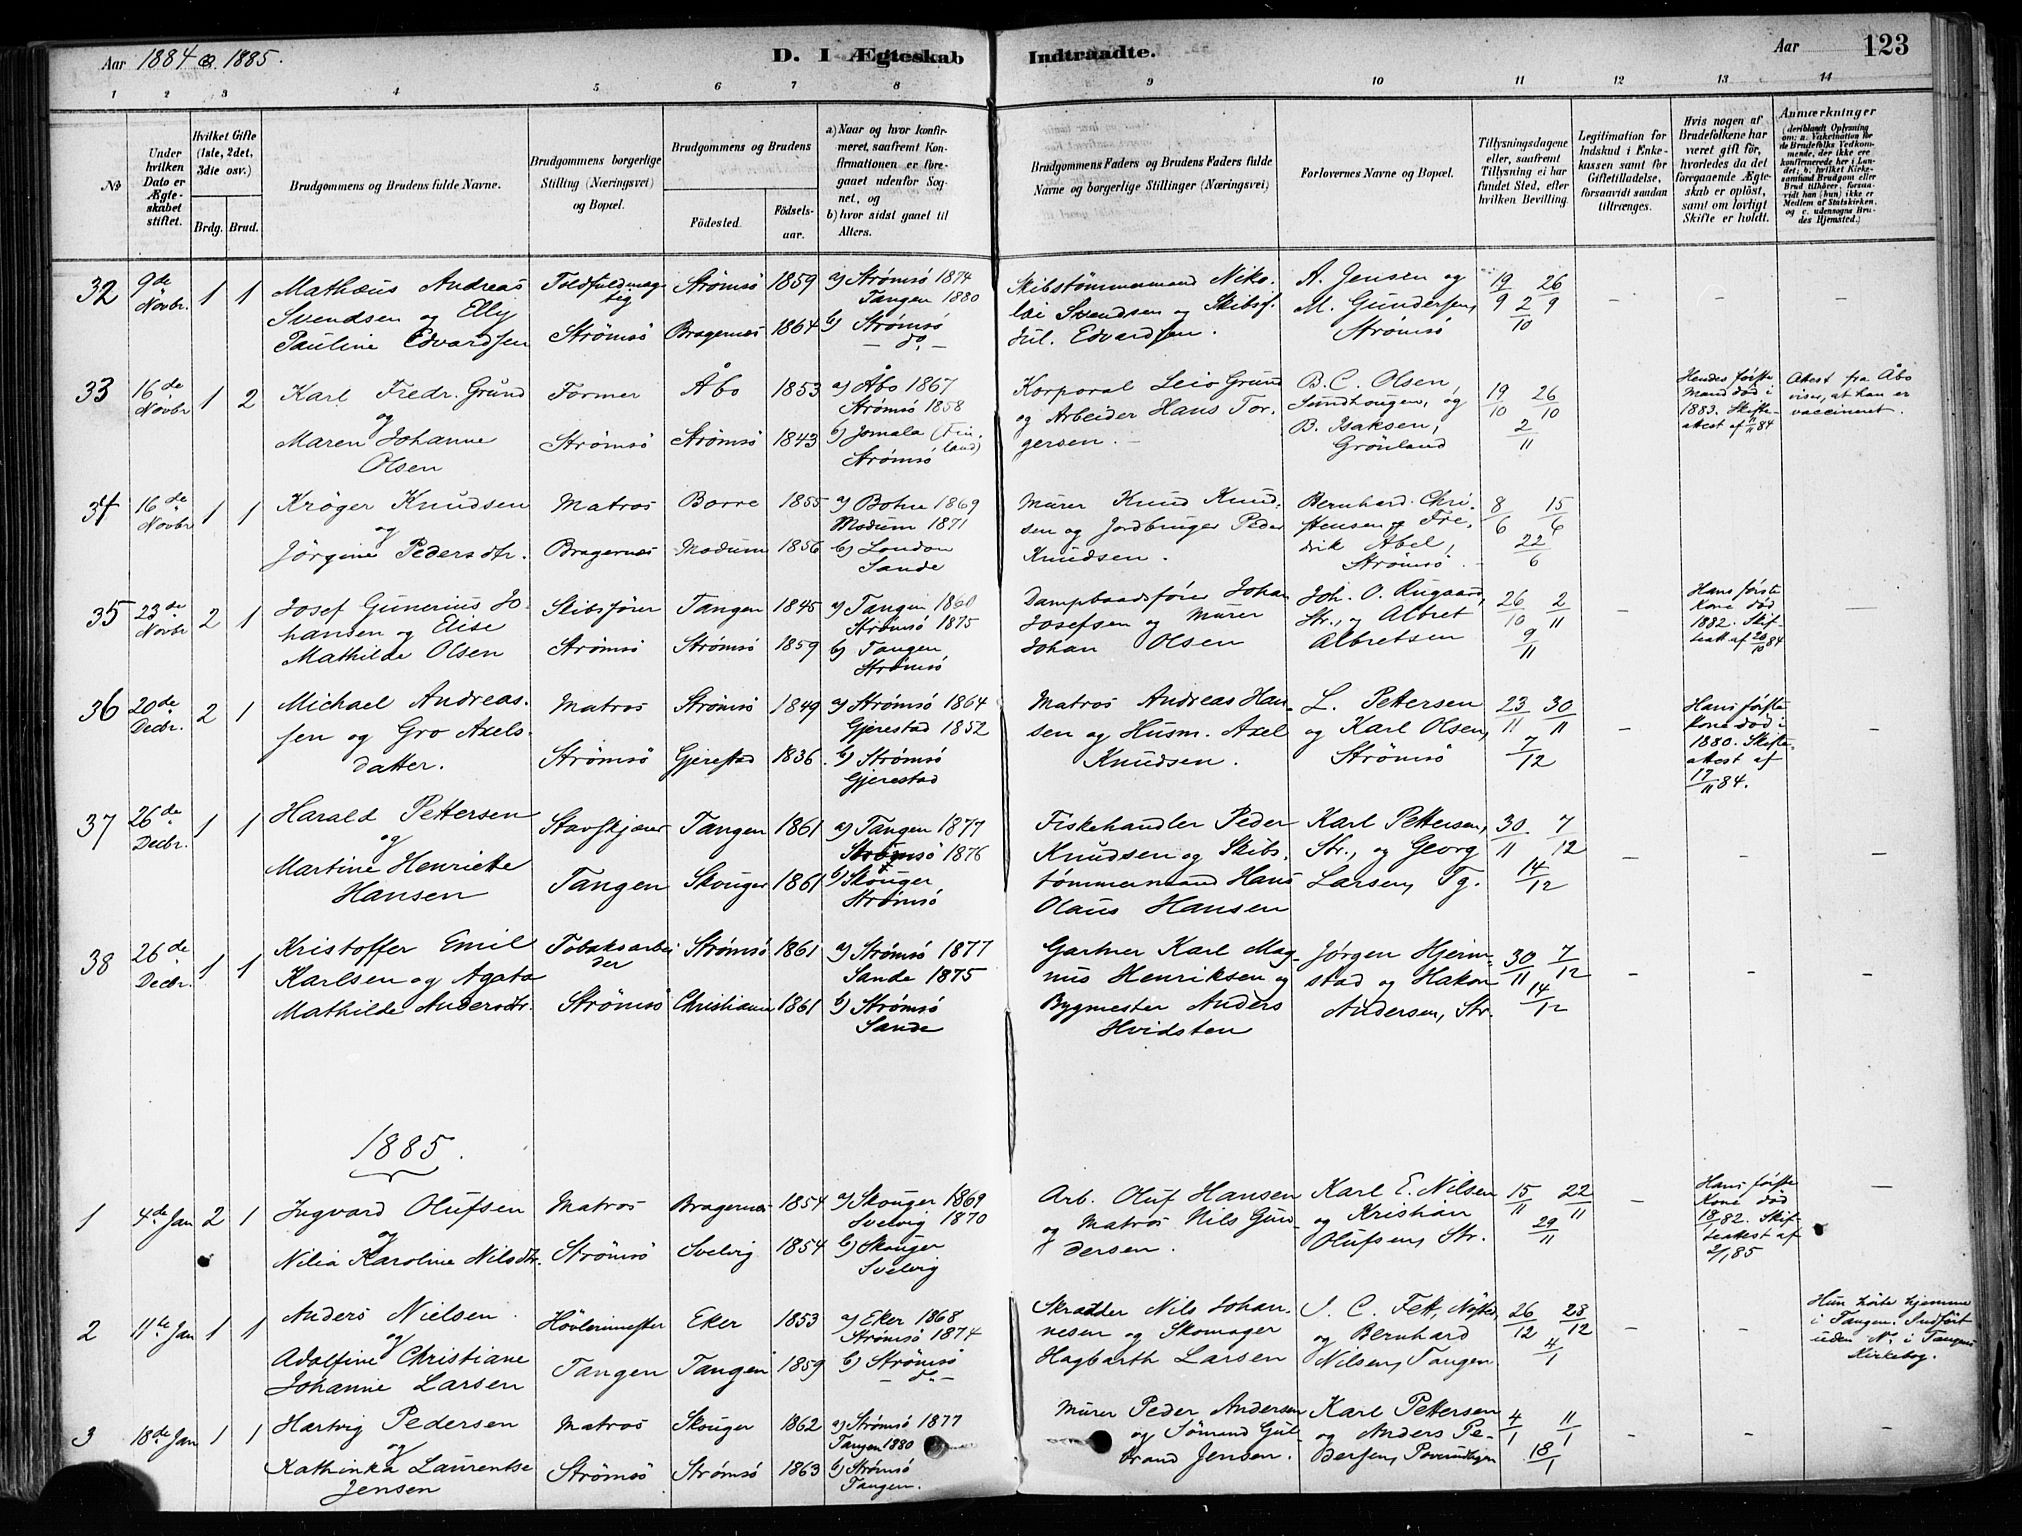 Aar 1884 & 1885.
D. I Ægteskab Indtraadte.
Aar 123
1 2 3 4 5 6 7 8 9 10 11 12 13 14
No
Under hvilken Dato er Ægteskabet stiftet.
Hvilket Gifte (1ste, 2det, 3die osv.)
Brdg. Brud.
Brudgommens og Brudens fulde Navne.
Brudgommens borgerlige Stilling (Næringsvei) og Bopæl.
Brudgommens og Brudens
Födested. Födsels-aar.
a) Naar og hvor konfirmeret, saafremt Konfirmationen er foregaaet udenfor Sognet, og
b) hvor sidst gaaet til Alters.
Brudgommens Faders og Brudens Faders fulde Navne og borgerlige Stillinger (Næringsvei)
Forlovernes Navne og Bopæl.
Tillysningsdagene eller, saafremt Tillysning ei har fundet Sted, efter hvilken Bevilling.
Legitimation for Indskud i Enkekassen samt for Giftetilladelse, forsaavidt saadan tiltrænges.
Hvis nogen af Brudefolkene har været gift för, hvorledes da det foregaaende Ægteskab er oplöst, samt om lovligt Skifte er holdt.
Anmærkninger (deriblandt Oplysning om: a. Vakcination for de Brudefolks Vedkommende, der ikke ere konfirmerede her i Landet; b. hvilket Kirkesamfund Brudgom eller Brud tilhörer, forsaavidt han (hun) ikke er Medlem af Statskirken, og c. udensogns Brudes Hjemsted.)
32 9de Novbr. 1 1 Mathæus Andreas Svendsen og Elly Pauline Edvardsen
Toldfuldmægtig Strømsö
Strømsö 1859
Bragernæs 1864
a) Strømsö 1874 Tangen 1880
b) Strømsö — do —
Skibstømmermand Nikolai Svendsen og Skibsf. Jul. Edvardsen.
A. Jensen og M. Gundersen, Strømsö
19/9 26/9 2/10
— — —
33 16de Novbr 1 2 Karl Fredr. Grund og Maren Johanne Olsen
Former Strømsö
Åbo 1853
Strømsö 1843
a) Åbo 1867 Strømsö 1858
b) Jomala (Finland) Strømsö
Korporal Leio Grund og Arbeider Hans Torgersen. —
B. C. Olsen, Sundhaugen, og B. Isaksen, Grönland
19/10 26/10 2/11
Hendes første Mand död i 1883. Skifteattest af 11/11 84
Attest fra Åbo viser, at han er vaccineret.
34 16de Novbr 1 1 Krøger Knudsen og Jörgine Pedersdtr.
Matros Bragernæs
Borre 1855
Modum 1856
a) 1869 Modum 1871
b) London Sande
Murer Knud Knudsen og Jordbruger Peder Knudsen.
Bernhard Christensen og Fredrik Abel, Strømsö
8/6 15/6 22/6
35 23de Novbr 2 1 Josef Gunerius Johansen og Elise Mathilde Olsen
Skibsfører Strømsö
Tangen 1845
Strømsö 1859
a) Tangen 1860 Strømsö 1875
b) Tangen Strømsö
Dampbaadsfører Johan Josefsen og Murer Johan Olsen
Joh. O. Rugaard, Str., og Albret Albretsen
26/10 2/11 9/11
—
Hans første Kone död 1882. Skifteatt. af 20/10 84
—
36 20de Decbr. 2 1 Michael Andreassen og Gro Axelsdatter.
Matros Strømsö
Strømsö 1849
Gjerestad 1836
a) Strømsö 1864 Gjerestad 1852
b) Strømsö Gjerestad
Matros Andreas Hansen og Husm. Axel Knudsen.
L. Pettersen og Karl Olsen, Strømsö
23/11 30/11 7/12
—
Hans første Kone död i 1880. Skifteattest af 17/11 84.
—
37 26de Decbr. 1 1 Harald Pettersen og Martine Henriette Hansen
Tangen
Tangen 1861
Skouger 1861
a) Tangen 1877 Strømsö 1876
b) Skouger Strømsö
Fiskehandler Peder Knudsen og Skibstømmermand Hans Olaus Hansen
Karl Pettersen, Str., og Georg Larsen, Tg.
30/11 7/12 14/12
— — —
38 26de Decbr. 1 1 Kristoffer Emil Karlsen og Agata Mathilde Andersdtr.
Tobaksarbeider Strømsö
Strømsö 1861
Christiania 1861
a) Strømsö 1877 Sande 1875
b) Strømsö Sande
Gartner Karl Magnus Henriksen og Bygmester Anders Hvidsten
Jørgen Hjermstad og Hakon Andersen, Str.
30/11 7/12 14/12
— — —
1885.
1 4de Jan 2 1 Ingvard Olufsen og Nilia Karoline Nilsdtr.
Matros Strømsö
Bragernæs 1854
Svelvig 1854
a) Skouger 1869 Svelvig 1870
b) Skouger Svelvig
Arb. Oluf Hansen og Matros Nils Gundersen.
Karl E. Nilsen og Kristian Olufsen, Str.
15/11 22/11 29/11
—
Hans første Kone död 18/ 82. Skifteattest af 2/1 85
—
2 11te Jan 1 1 Anders Nielsen og Adolfine Christiane Johanne Larsen
Høvlerimester Tangen
Eker 1853
Tangen 1859
a) Eker 1868 Strømsö 1874
b) Strømsö — do —
Skrædder Nils Johannesen og Skomager Hagbarth Larsen
J. C. Fett, Nøsted, og Bernhard Nilsen, Tangen
26/12 28/12 4/1
— —
Hun hörte hjemme i Tangen. Indført uden No. i Tangens Kirkebog.
3 18de Jan 1 1 Hartvig Pedersen og Kathinka Laurentse Jensen
Matros Strømsö
Skouger 1862
Strømsö 1863
a) Strømsö 1877 Tangen 1880
b) Strømsö Tangen.
Murer Peder Andersen og Sömand Gulbrand Jensen.
Karl Pettersen og Anders Pedersen,
4/1 11/1 18/1
— — —